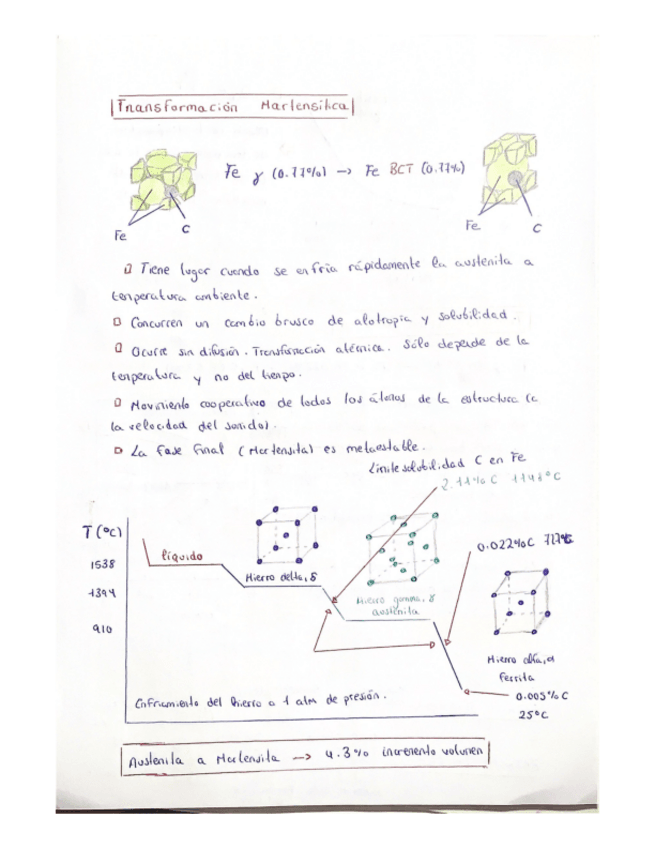 Transformación Martensítica
Fe γ (0.77%) → Fe BCT (0.77%)
Fe C
Fe C
Tiene lugar cuando se enfría rápidamente la austenita a
temperatura ambiente.
Concurren un cambio brusco de alotropía y solubilidad.
Ocurre sin difusión. Transformación atérmica. Sólo depende de la
temperatura y no del tiempo.
Movimiento cooperativo de todos los átomos de la estructura (a
la velocidad del sonido).
La fase final (Martensita) es metaestable.
Límite solubilidad C en Fe
2.11%C 1148°C
T (°C)
1538
1394
910
líquido
Hierro delta, δ
Hierro gamma, γ
austenita
0.022%C 727°C
Hierro alfa, α
ferrita
0.005%C
25°C
Enfriamiento del hierro a 1 atm de presión.
Austenita a Martensita → 4.3% incremento volumen